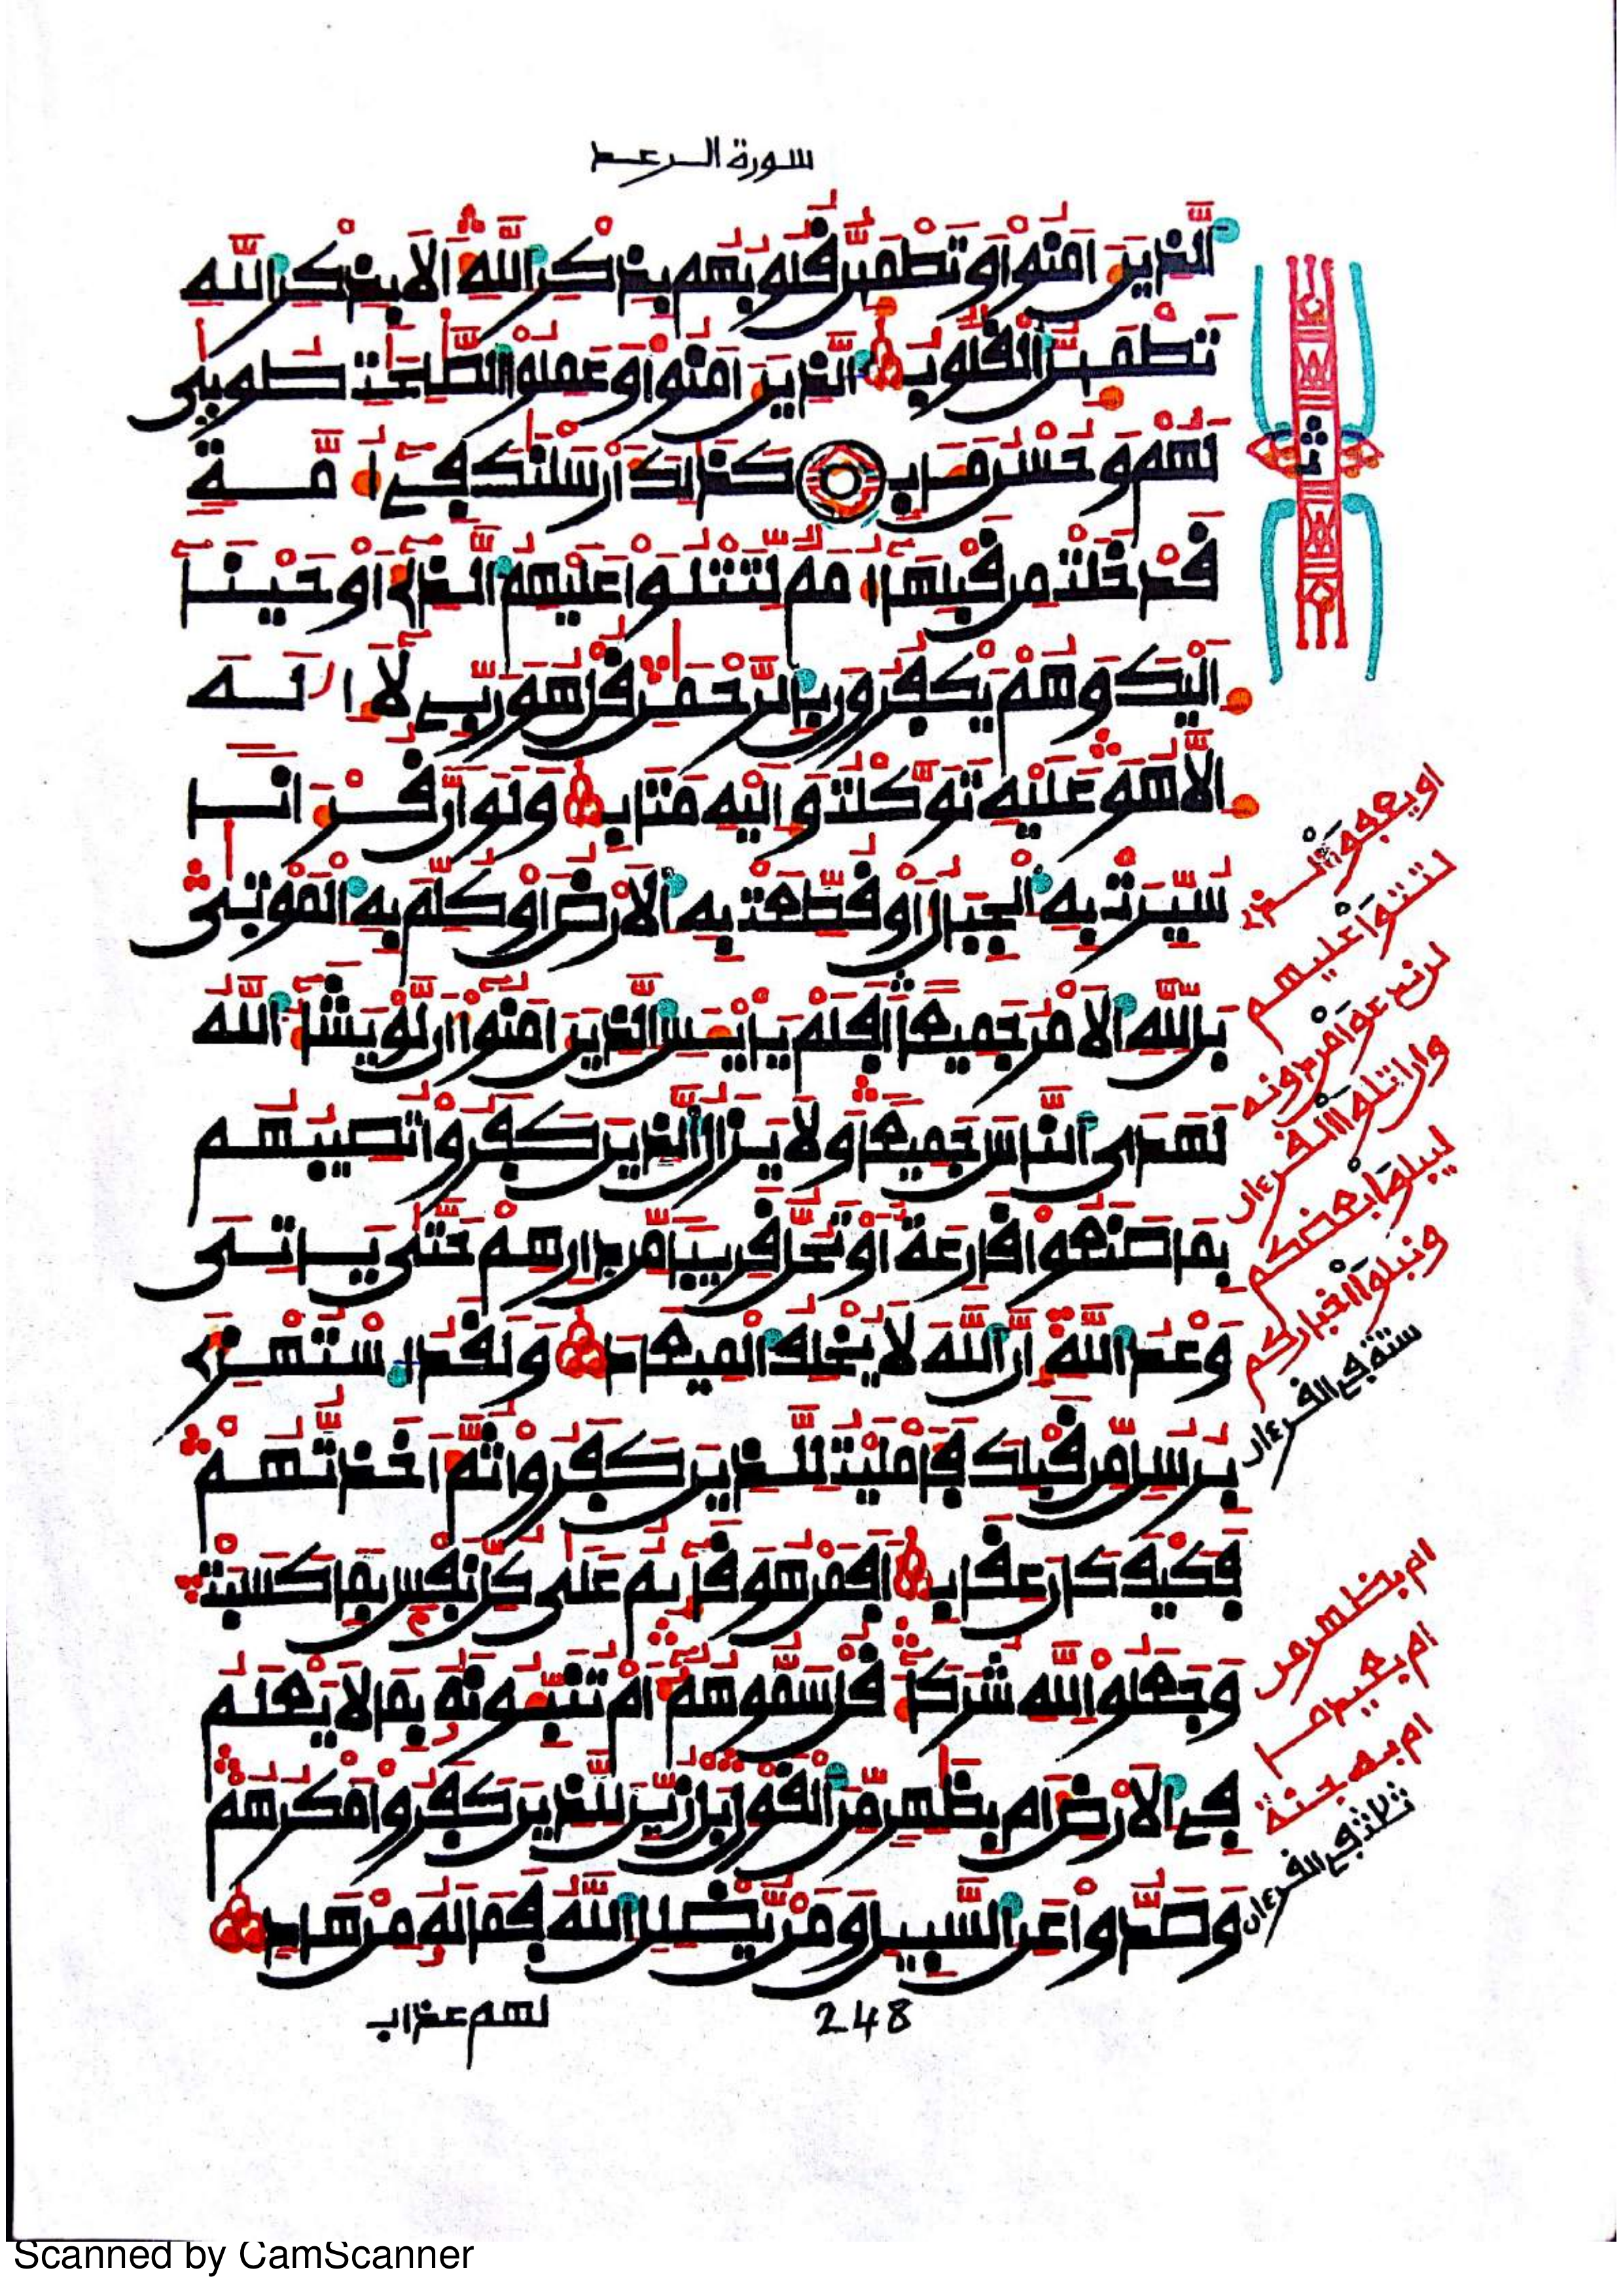 سورة الرعد
الذين ءامنوا وتطمئن قلوبهم بذكر الله ألا بذكر الله
تطمئن القلوب الذين ءامنوا وعملوا الصلحت طوبى
لهم وحسن مـاب كذلك أرسلنك في أمة
قد خلت من قبلها أمم لتتلوا عليهم الذي أوحينا
إليك وهم يكفرون بالرحمن قل هو ربي لا إله
إلا هو عليه توكلت وإليه متاب ولو أن قرءانا
سيرت به الجبال أو قطعت به الأرض أو كلم به الموتى
بل لله الأمر جميعا أفلم يايـس الذين ءامنوا أن لو يشاء الله
لهدى الناس جميعا ولا يزال الذين كفروا تصيبهم
بما صنعوا قارعة أو تحل قريبا من دارهم حتى ياتي
وعد الله إن الله لا يخلف الميعاد ولقد استهزئ
برسل من قبلك فأمليت للذين كفروا ثم أخذتهم
فكيف كان عقاب أفمن هو قائم على كل نفس بما كسبت
وجعلوا لله شركاء قل سموهم أم تنبـونه بما لا يعلم
في الأرض أم بظهر من القول بل زين للذين كفروا مكرهم
وصدوا عن السبيل ومن يضلل الله فما له من هاد
اويعفوا الذي
لتتلوا عليهم
لن ندعوا من دونه
وان اتلوا القرءان
ليبلوا بعضكم
ونبلوا اخباركم
ستة في القرءان
ام بظهر من
ام بعيد ما
ام به جنة
ثلاث في القرءان
248
لهم عذاب
Scanned by CamScanner